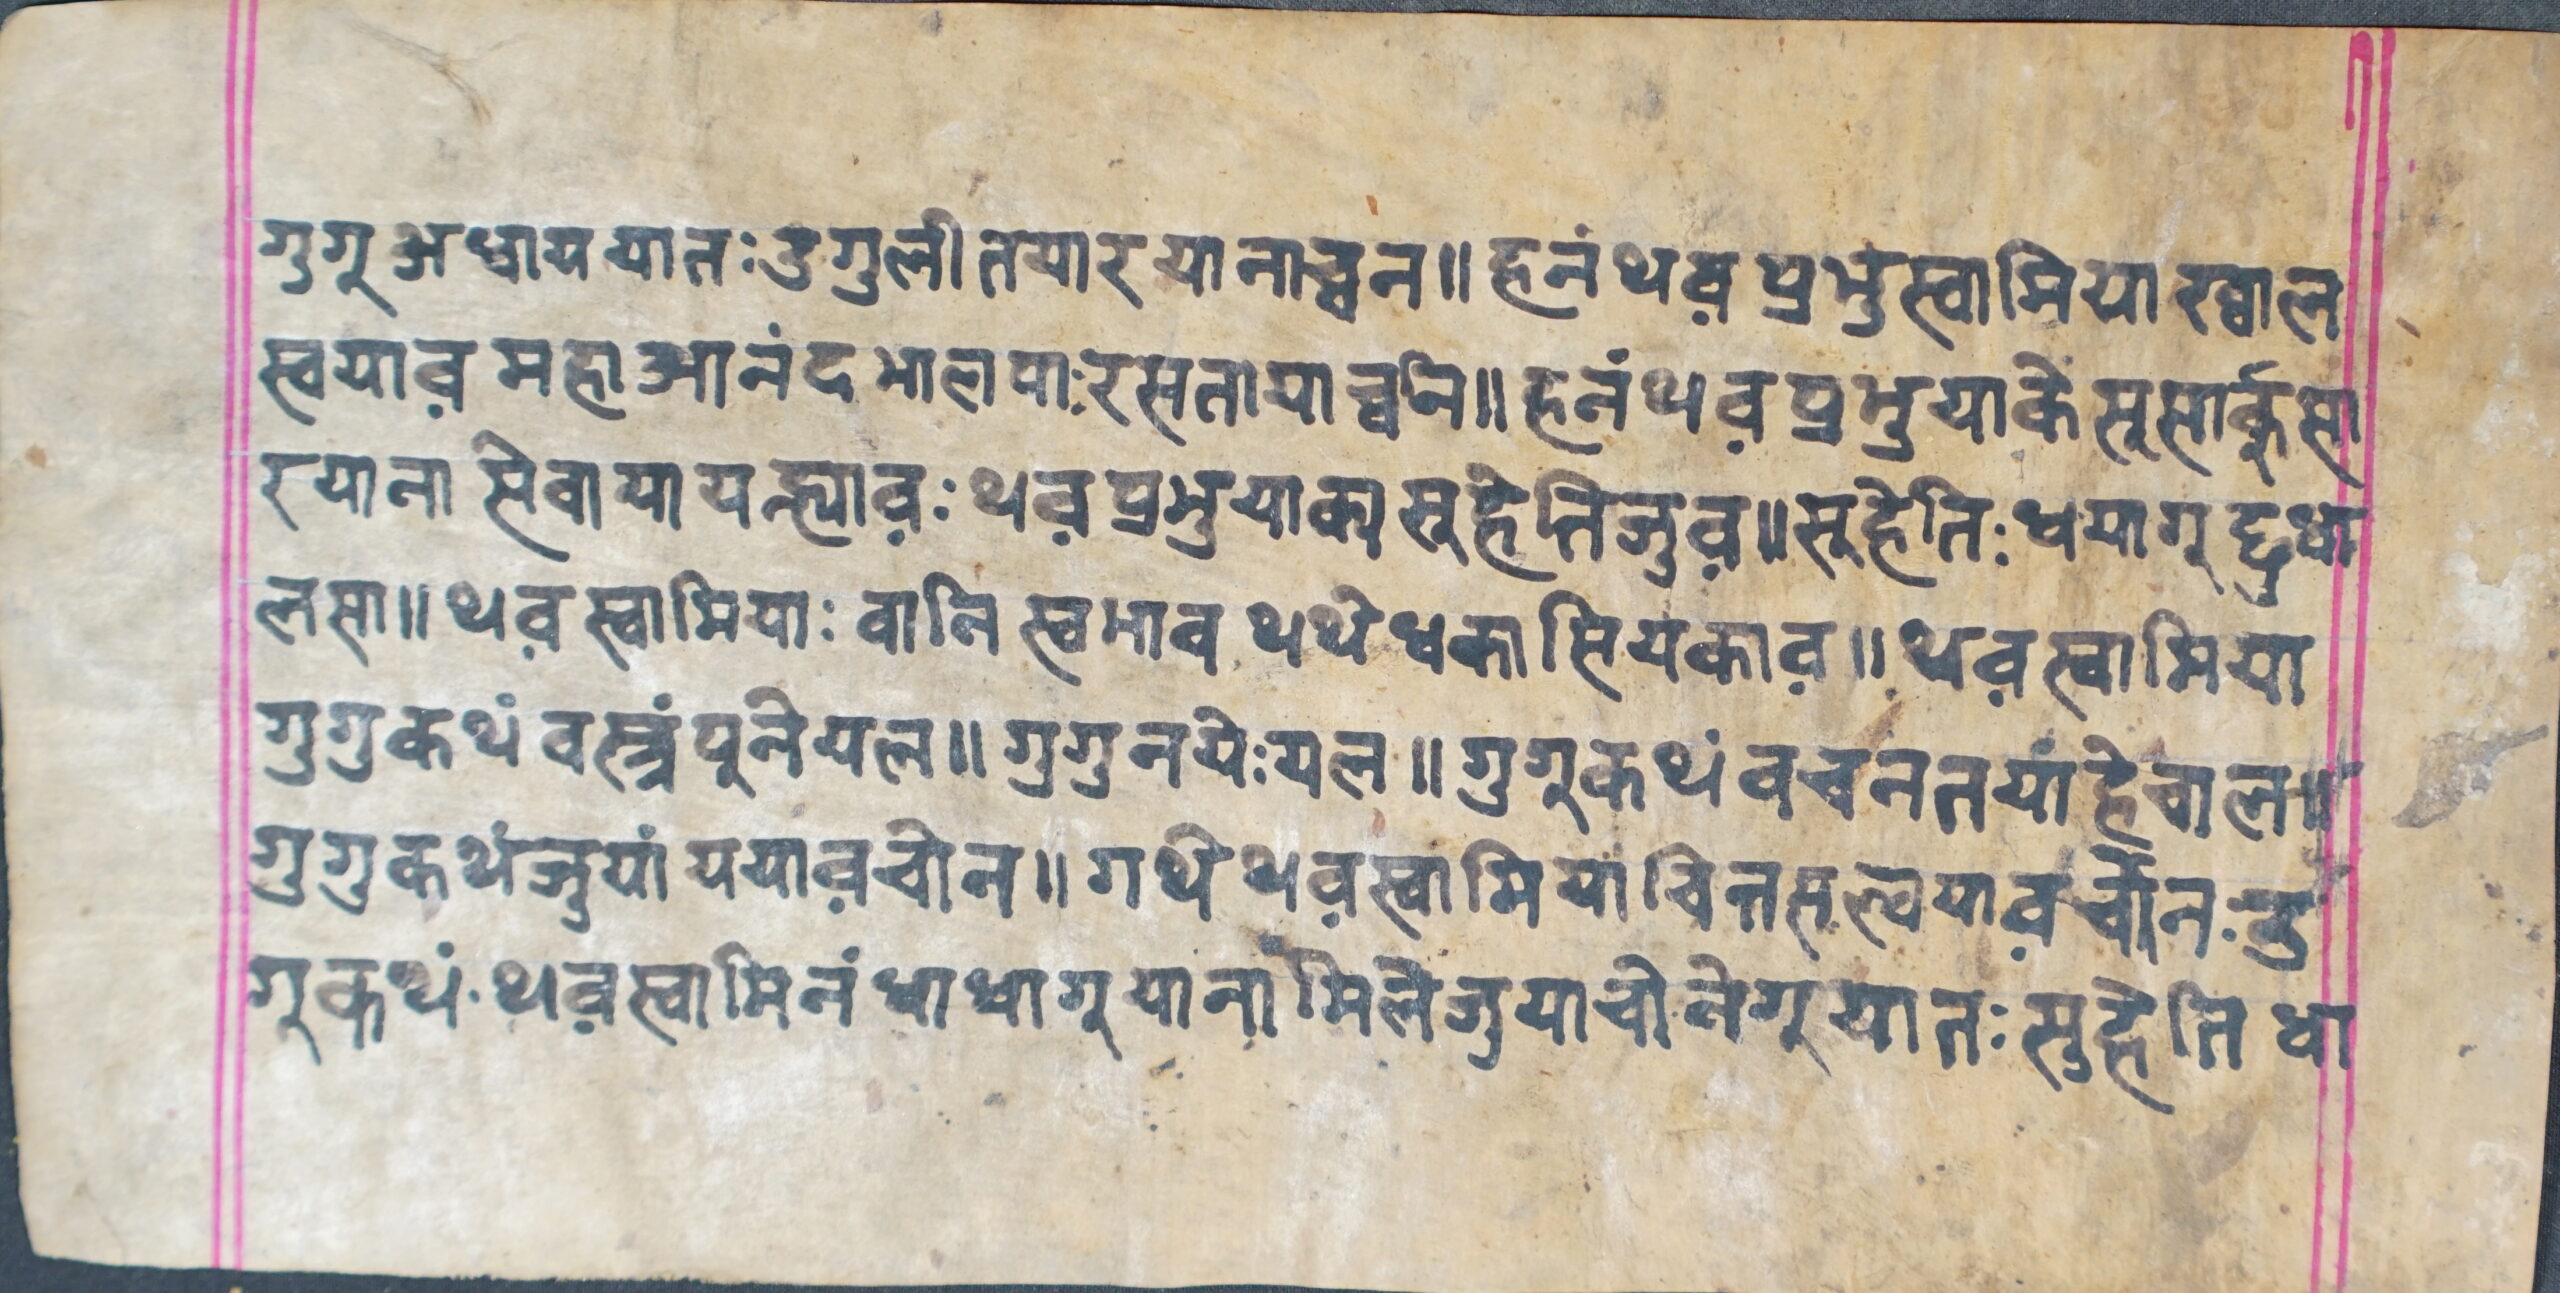 गुगू अध्वाय यातः डुगुली तयार यानाच्वन॥ हनं थव़ प्रभुस्वामिया ख्वाल
स्वयाव़ महा आनंद भालपाः रसतायाच्वनि॥ हनं थव़ प्रभुयाके सूसार्कूसा
रयाना सेवायायन्ह्याव़ः थव़ प्रभुयाक्य सूह्रेतिजुव़॥ सूह्रेतिः धयागू द्रुधा
लसा॥ थव़ स्वामियाः वानि स्वभाव थथे धका सियकाव़॥ थव़ स्वामिया
गुगुकथं वस्त्रं पूनेयल॥ गुगुनयेःयल॥ गुगूकथं वचनतयां हेचाल॥
गुगुकथंजुयां ययाव़चोन॥ गथे थव़स्वामिया चित्तसल्वयाव़चोनः डु
गूकथं थव़स्वामिनं धाधागू याना मिलेजुयाचोनेगू यातः सुह्रेति धा